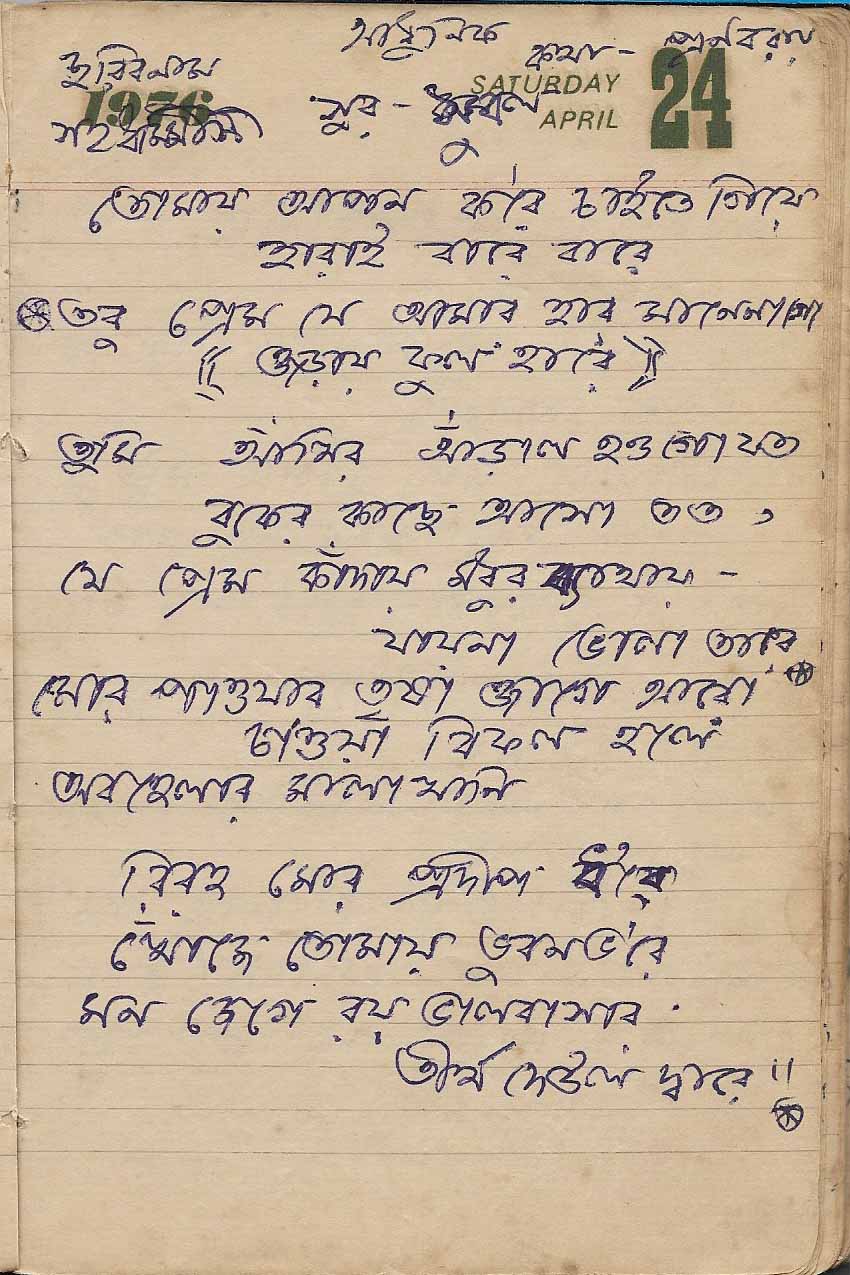 আধুনিক
কথা - প্রণব রায়
হরিনাম
1976
SATURDAY
APRIL
24
সুর - সুবল
তোমায় আপন ক'রে চাইতে গিয়ে
হারাই বারে বারে
তবু প্রেম যে আমার হার মানেনা গো
(( জড়ায় ফুল হারে ))
তুমি আঁখির আঁড়াল হও গো যত
বুকের কাছে আসো তত,
যে প্রেম কাঁদায় মধুর ব্যাথায় -
যায়না ভোলা তারে
মোর পাওয়ার তৃষা জাগে আরো
চাওয়া বিফল হলে
অবহেলার মালা খানি
বিরহ মোর প্রদীপ ধ'রে
খোঁজে তোমায় ভুবন ভ'রে
মন জেগে রয় ভালবাসার
তীর্থ দেউল দ্বারে ॥